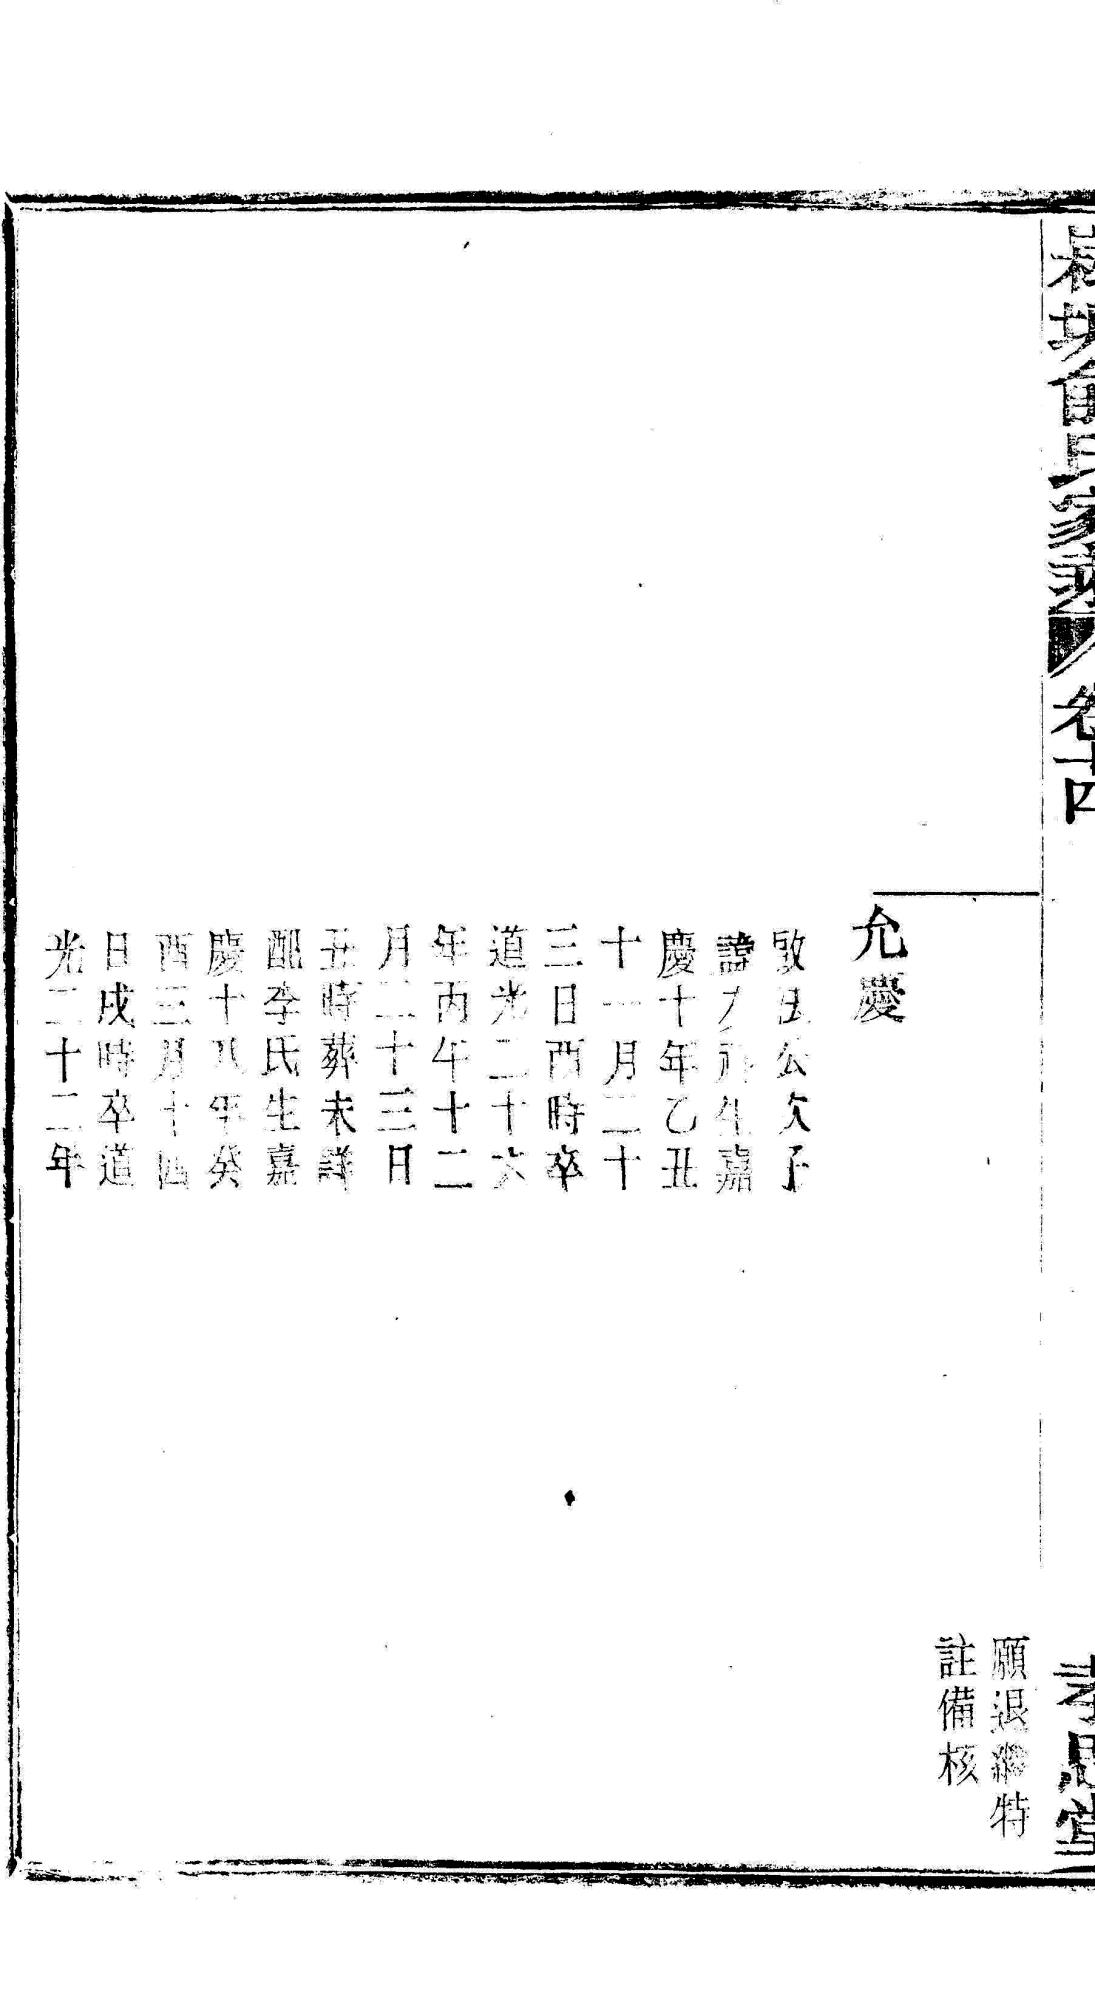 氏家
卷十四
孝思堂
願退繼特
註備核
允慶
公次子
諱生嘉
慶十年乙丑
十一月二十
三日酉時卒
道光二十六
年丙午十二
月二十三日
丑時葬未詳
配李氏生嘉
慶十八年癸
酉三月十四
日戌時卒道
光二十二年